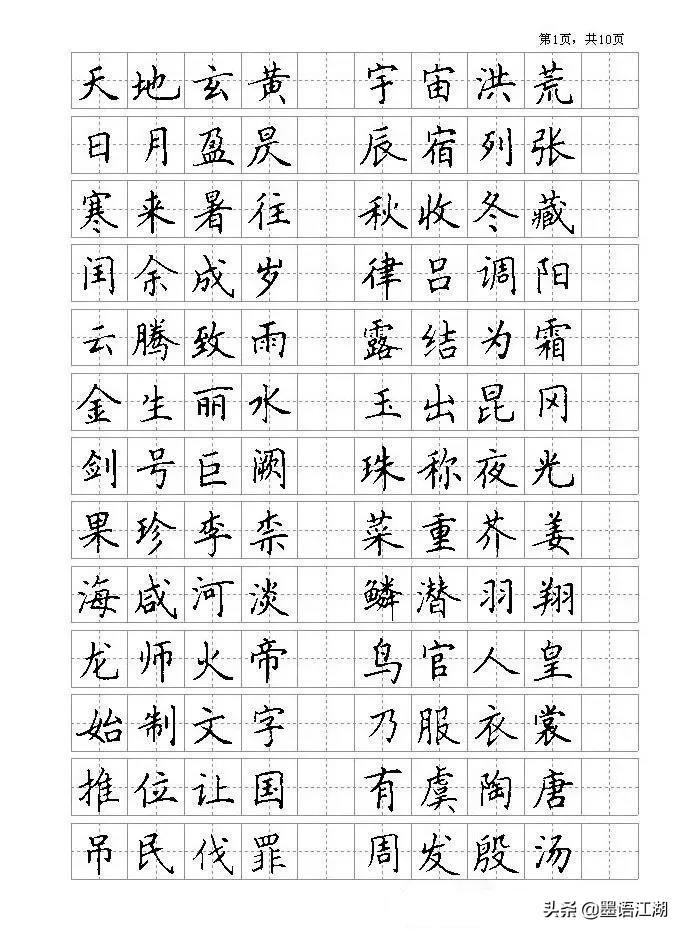 第1页，共10页
天地玄黄 宇宙洪荒
日月盈昃 辰宿列张
寒来暑往 秋收冬藏
闰余成岁 律吕调阳
云腾致雨 露结为霜
金生丽水 玉出昆冈
剑号巨阙 珠称夜光
果珍李柰 菜重芥姜
海咸河淡 鳞潜羽翔
龙师火帝 鸟官人皇
始制文字 乃服衣裳
推位让国 有虞陶唐
吊民伐罪 周发殷汤
头条 @墨语江湖